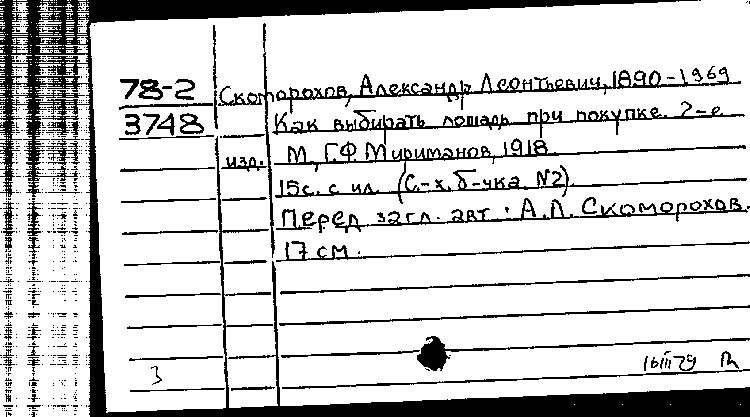 78-2 Скоморохов, Александр Леонтьевич, 1890-1969
3748 Как выбирать лошадь при покупке. 2-е
изд. М., Г.Ф. Мириманов, 1918
15с. с ил. (С.-х. б-чка. №2)
Перед загл. авт.: А.Л. Скоморохов.
17 см.
3 16 III 79